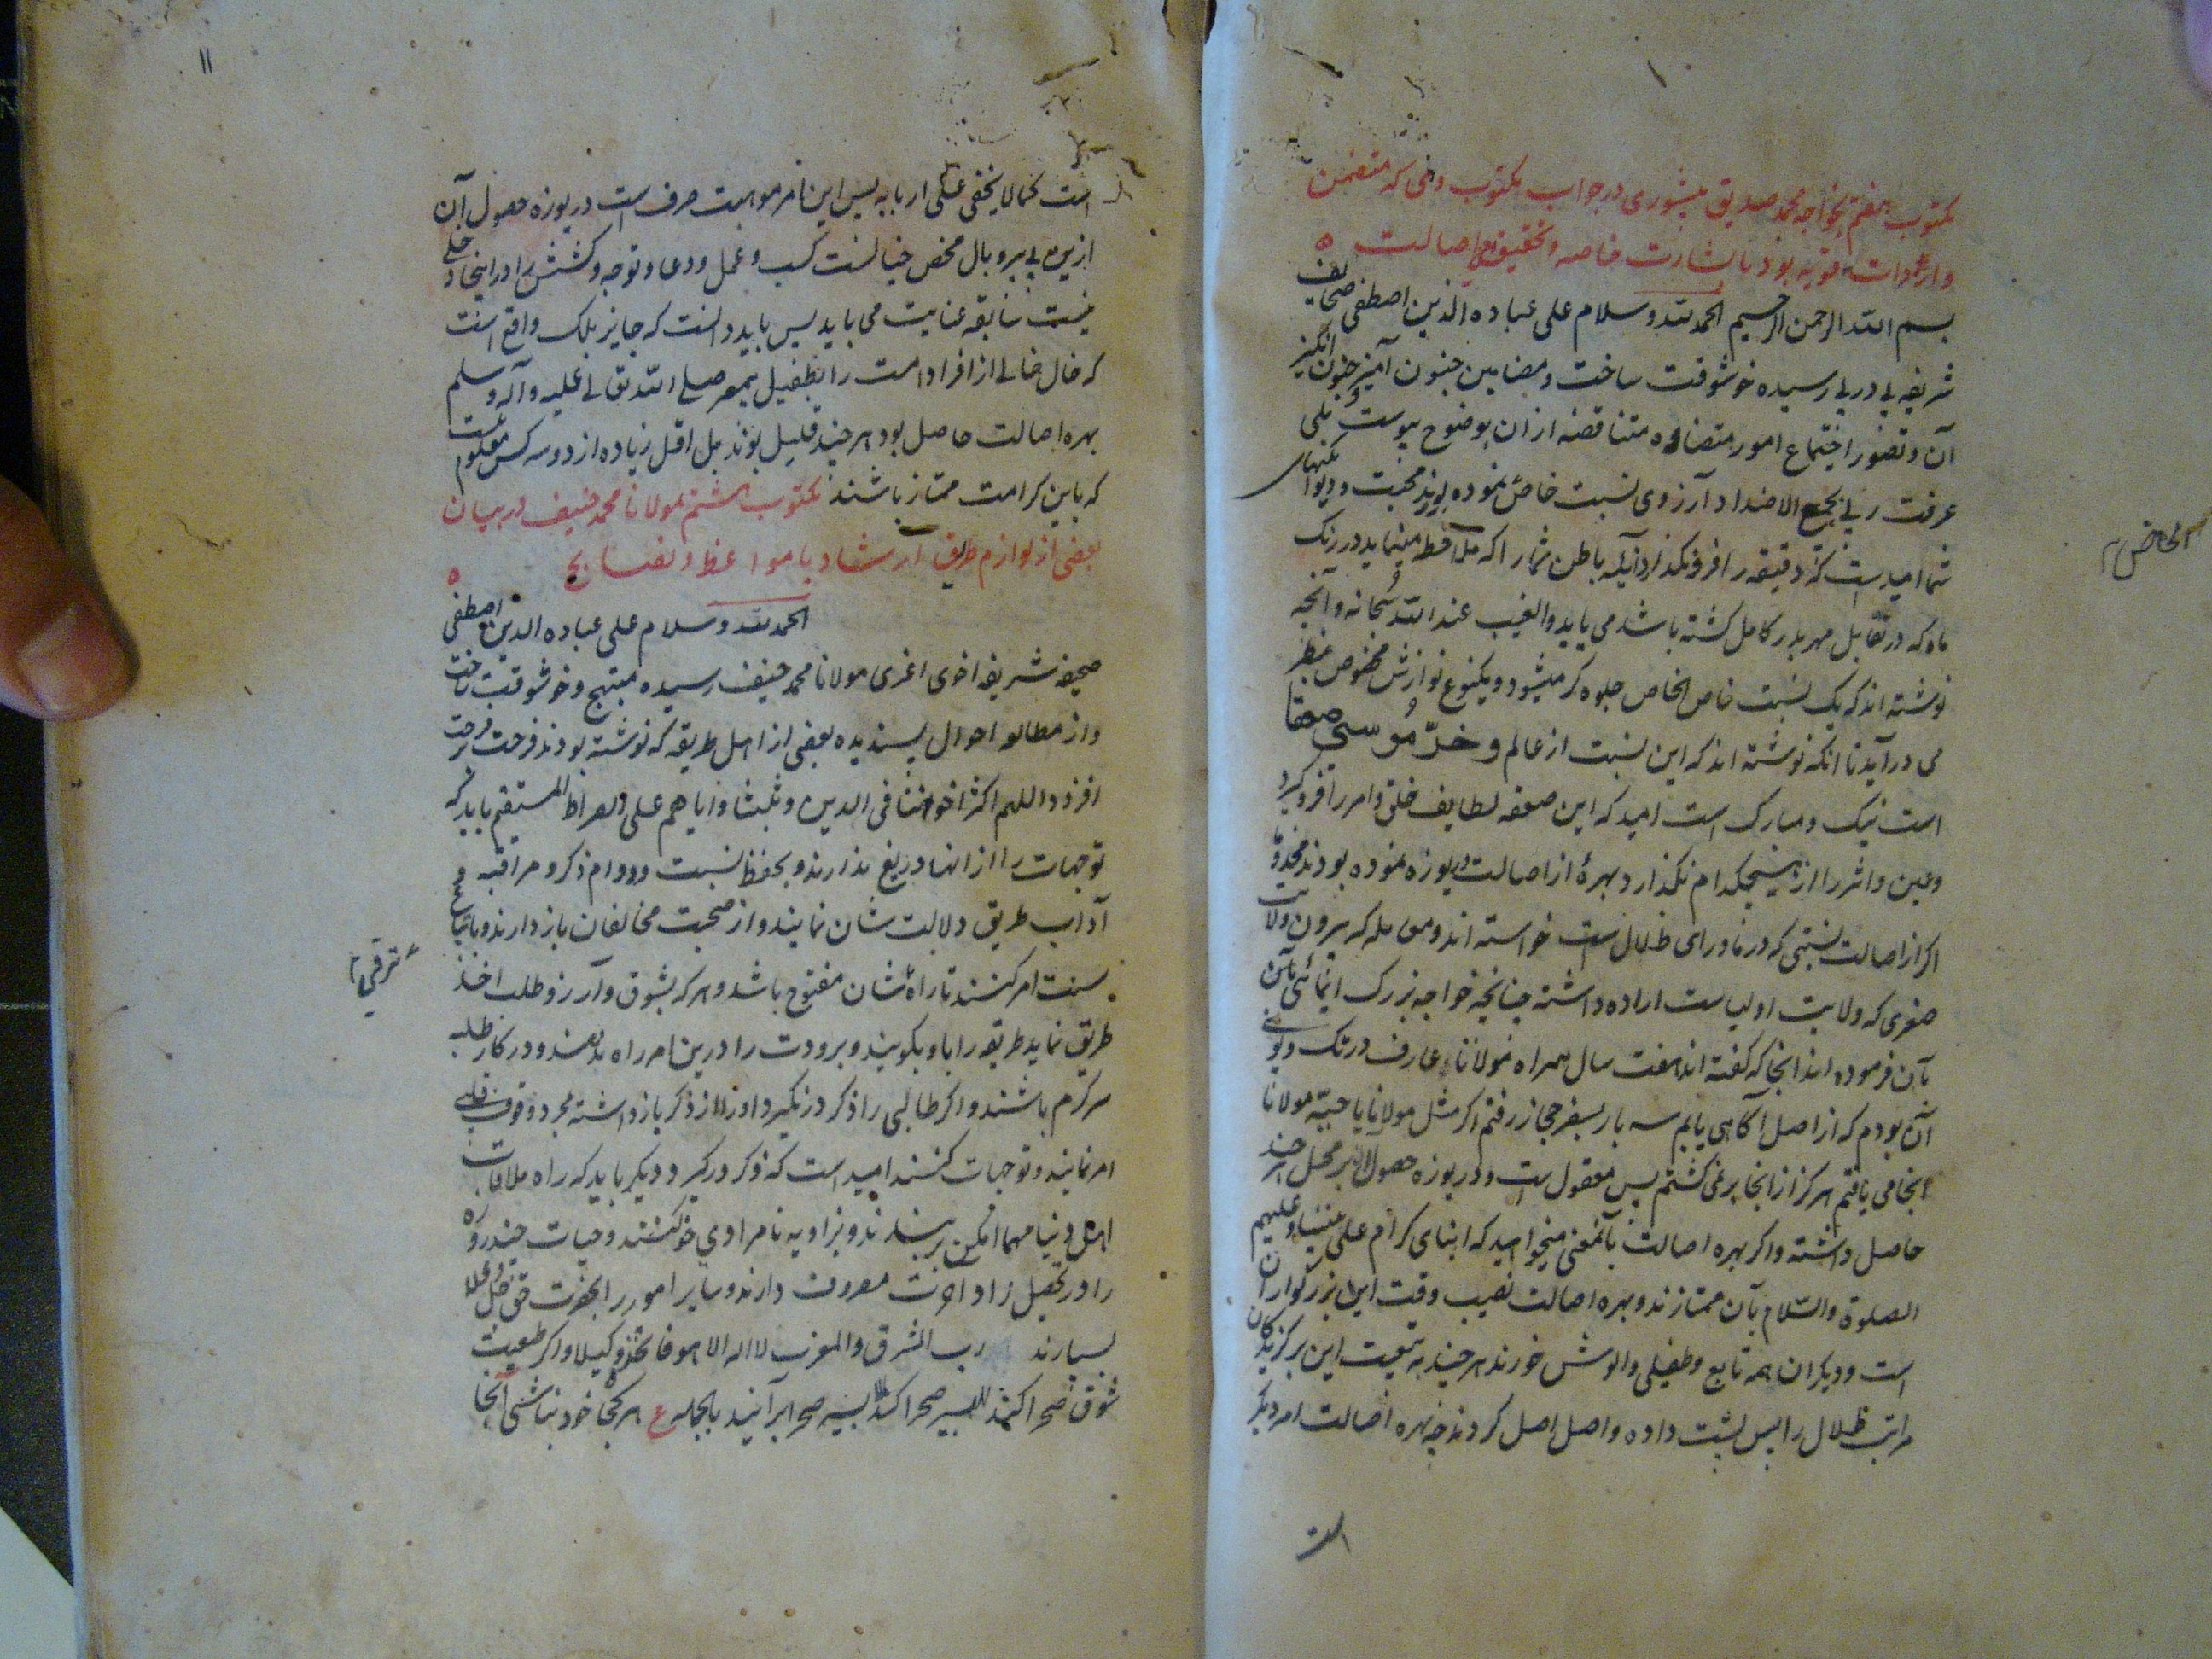 مکتوب هفتم بخواجه محمد صدیق پشوری در جواب مکتوب وی که متضمن
واردات قویه بود با بشارت خاصه و تحقیق اصالت
بسم الله الرحمن الرحیم الحمد لله و سلام علی عباده الذین اصطفی صحایف
شریفه پی در پی رسیده خوشوقت ساخت و مضامین جنون آمیز جنون انگیز
آن و تصور اجتماع امور متضاده متناقضه ازان بوضوح پیوست بلی
عرفت ربی بجمع الاضداد آرزوی نسبت خاص نموده بودند محبت و دیوانگیهای
شما امید است که دقیقه را فرو نگذارد باطن شما را که ملاحظه مینماید در رنگ
ماه که در تقابل مهر بدر کامل گشته باشد می یابد والغیب عند الله سبحانه و آنچه
نوشته اند که یک نسبت خاص الخاص جلوه گر میشود و یکنوع نوازش مخصوص بنظر
می درآید تا آنکه نوشته اند که این نسبت از عالم و خرّ موسی صعقا
است نیک و مبارک است امید که این صعقه لطایف خلق و امر را فرو گیرد
و عین و اثر را از هیچکدام نگذارد و بهرهٔ از اصالت دریوزه نموده بودند مخدوما
اگر از اصالت نسبتی که در ماورای ظلال است خواسته اند و معامله که بیرون ولایت
صغری که ولایت اولیاست اراده داشته چنانچه خواجه بزرگ ایمائی بآن
بآن فرموده اند انجا که گفته اند هفت سال همراه مولانا عارف در تک و پوی
آن بودم که از اصل آگاهی یابم سه بار بسفر حجاز رفتم اگر مثل مولانا یا حبهٔ مولانا
انجا می یافتم هرگز از انجا بر نمی گشتم پس معقول است و دریوزه حصول آن بر محل هر چند
حاصل داشته و اگر بهره اصالت بآنمعنی میخواهید که انبیای کرام علی نبینا و علیهم
الصلوة والسلام بآن ممتازند و بهره اصالت نصیب وقت این بزرگواران
است و دیگران همه تابع و طفیلی و الوش خورند هر چند به تبعیت این برگزیدگان
مراتب ظلال را پس پشت داده و اصل اصل گردند چه بهره اصالت امر دیگر
است
الخاص
۱۱
است کما لا یخفی علی اربابه پس این امر موهبت صرف است دریوزه حصول آن
ازین بی پر و بال محض خیالست کسب و عمل و دعا و توجه و کشش را در اینجا دخلی
نیست سابقه عنایت می باید پس باید دانست که جایز بلکه واقع است
که خال خالی از افراد امت را بطفیل پیغمبر صلی الله تعالی علیه وآله وسلم
بهره اصالت حاصل بود هر چند قلیل بوند بل اقل زیاده از دو سه کس معلوم نیست
که باین کرامت ممتاز باشند مکتوب هشتم بمولانا محمد حنیف در بیان
بعضی از لوازم طریق ارشاد با مواعظ و نصایح
الحمد لله و سلام علی عباده الذین اصطفی
صحیفه شریفه اخوی اعزی مولانا محمد حنیف رسیده مبتهج و خوشوقت ساخت
و از مطالعه احوال پسندیده بعضی از اهل طریقه که نوشته بودند فرحت بر فرحت
افزود اللهم اکثر اخواننا فی الدین و ثبتنا و ایاهم علی الصراط المستقیم باید که
توجهات را از انها دریغ ندارند و بحفظ نسبت و دوام ذکر و مراقبه و
آداب طریق دلالت شان نمایند و از صحبت مخالفان باز دارند و باتباع
سنت امر کنند تا راه شان مفتوح باشد و هر که بشوق و آرزو طلب اخذ
طریق نماید طریقه را باو بگویند و برودت را درین امر راه ندهند و در کار طلبه
سرگرم باشند و اگر طالبی را ذکر در نگیرد او را از ذکر باز داشته بمجرد وقوف قلبی
امر نمایند و توجهات کنند امید است که ذکر در گیرد و دیگر باید که راه ملاقات
اهل دنیا مهما امکن بر نبندند و بزاویه نامرادی خو کنند و حیات چند روزه
را در تحصیل زاد آخرت مصروف دارند و سایر امور را بحضرت حق جل و علا
بسپارند رب المشرق والمغرب لا اله الا هو فاتخذه وکیلا و اگر طبیعت
شوق صحرا کند بسیر صحرا برآیند بالجمله ع هر کجا خود نباشی آنجا
ترقی